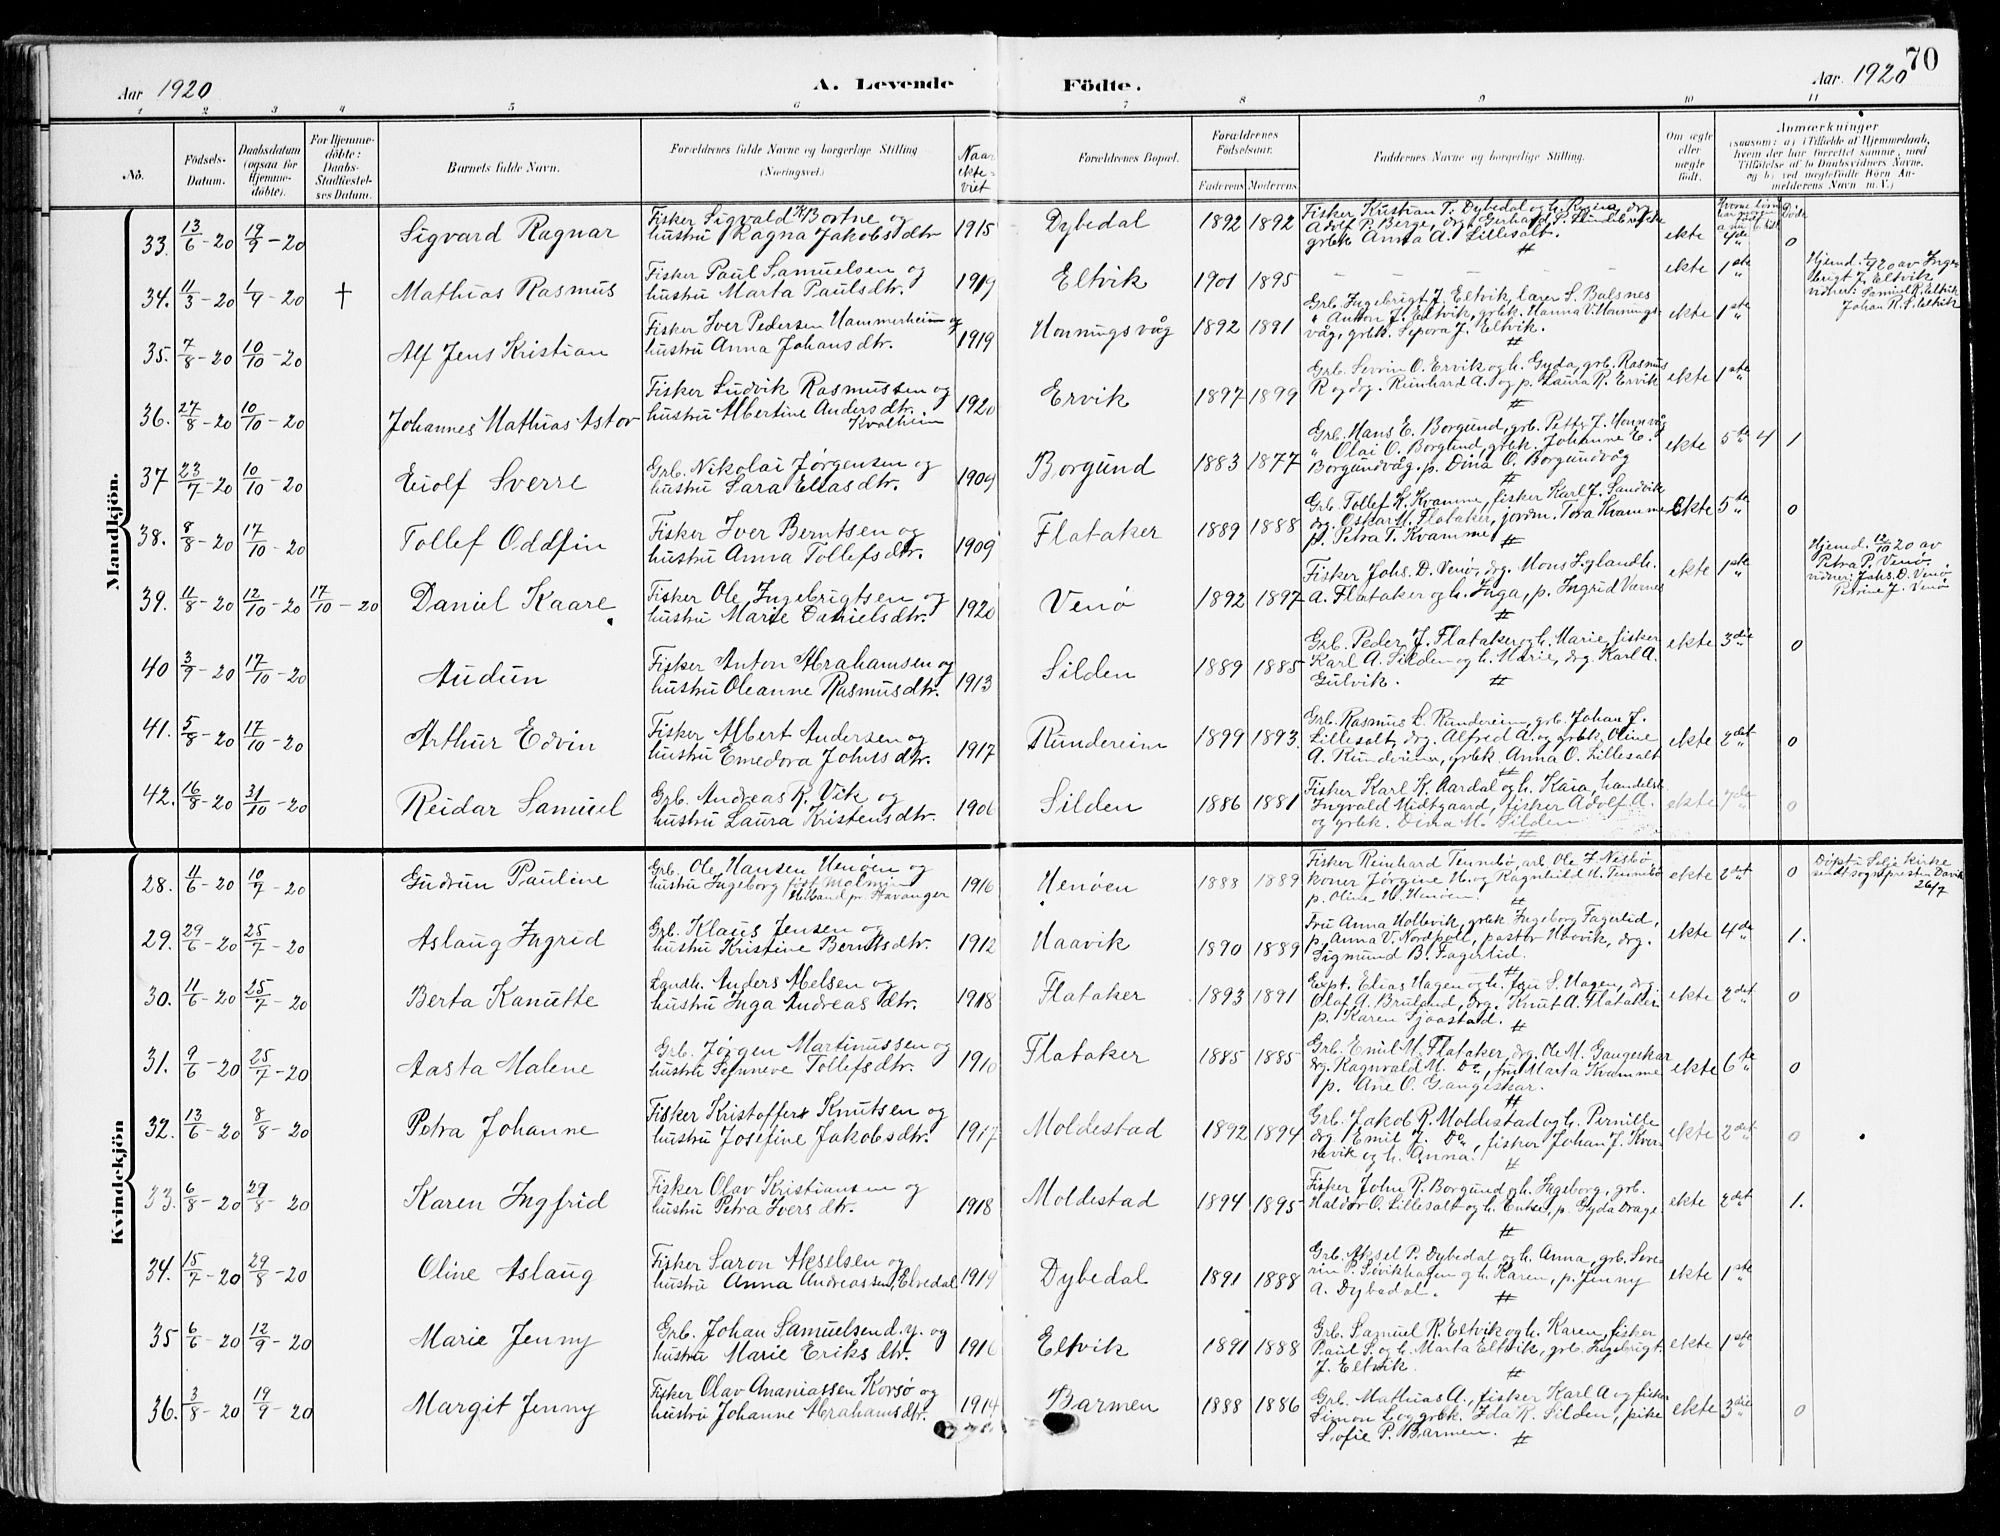 70
Aar 1920
A. Levende
Födte.
Aar 1920
1 2 3 4 5 6 7 8 9 10 11
No.
Födsels-Datum.
Daabsdatum (ogsaa for Hjemmedöbte).
For Hjemmedöbte: Daabs-Stadfæstelses Datum.
Barnets fulde Navn.
Forældrenes fulde Navne og borgerlige Stilling
(Næringsvei.)
Naar ekteviet
Forældrenes Bopæl.
Forældrenes Födselsaar.
Faderens Moderens
Faddernes Navne og borgerlige Stilling.
Om ægte eller uægte födt.
Anmærkninger
(saasom: a) i Tilfælde af Hjemmedaab, hvem der har forrettet samme, med Tilföielse af to Daabsvidners Navne, og b) ved uægtefödte Börn Anmelderens Navn m. V.)
Mandkjön.
33. 13/6-20 19/9-20 Sigvard Ragnar
Fisker Sigvald K Bortne og
hustru Ragna Jakobsdtr 1915 Dybedal 1892 1892
Fisker Kristian T. Dybedal og h. Regina, drg.
Adolf P. Berge, drg. Gerhard
grbk Anna A. Lillesalt.
ekte 4de 0
34. 11/3-20 1/9-20 † Mathias Rasmus
Fisker Paul Samuelsen og
hustru Marta Paulsdtr. 1919 Eltvik 1901 1895 ekte 1ste
Hjemd. 1/9 20 av Inge-
brigt J. Eltvik
vidner: Samuel R. Eltvik
Johan R. S. Eltvik
35. 7/8-20 10/10-20 Alf Jens Kristian
Fisker Iver Pedersen Hammerheim og
hustru Anna Johansdtr. 1919 Honningsvåg 1892 1891
Grb. Ingebrigt J. Eltvik, lærer S. Balsnes
" Anton J. Eltvik, grbk. Hanna V. Honnings-
våg, grbk. Sepora J. Eltvik.
ekte 1ste
36. 27/8-20 10/10-20 Johannes Mathias Astor
Fisker Ludvik Rasmussen og
hustru Albertine Andersdtr. 1920
Kvalheim
Ervik 1897 1899
Grb. Severin O. Ervik og h. Gyda, grb. Rasmus
R og drg. Reinhard A. og p. Laura R. Ervik
ekte 1ste
37 23/7-20 10/10-20 Eiolf Sverre
Grb. Nikolai Jørgensen og
hustru Sara Eliasdtr. 1904 Borgund 1883 1877
Grb. Hans E. Borgund, grb. Petter J. Honnvåg
" Olai O. Borgund, grbk. Johanne E.
Borgundvåg. p. Dina O. Borgundvåg
ekte 5te 4 1
38. 8/8-20 17/10-20 Tollef Oddfin
Fisker Iver Berntsen og
hustru Anna Tollefsdtr. 1909 Flataker 1889 1888
Grb. Tollef K. Kvamme, fisker Karl J. Sandvik
drg. Oskar M. Flataker, jordm. Tora Kvamme
p. Petra T. Kvamme
ekte 5te 0
39. 11/8-20 12/10-20 17/10-20 Daniel Kaare
Fisker Ole Ingebrigtsen og
hustru Marie Danielsdtr. 1920 Venø 1892 1897
Fisker Johs. D. Venø, drg. Mons I, gl. andh.
A. Flataker og h. Inga, p. Ingrid Værnes
ekte 1ste
Hjemd. 12/10 20 av
Petra P. Venø.
vidner: Johs. D. Venø,
Petrine J. Venø
40 3/7-20 17/10-20 Audun
Fisker Anton Abrahamsen og
hustru Oleanne Rasmusdtr. 1913 Silden 1889 1885
Grb. Peder J. Flataker og h. Marie, fisker
Karl A. Silden og h. Marie, drg. Karl A.
Gulvik.
ekte 3die 0
41. 5/8-20 17/10-20 Arthur Edvin
Fisker Albert Andersen og
hustru Emedora Johnsdtr. 1917 Rundereim 1899 1893.
Grb. Rasmus L. Rundereim, grb. Johan J.
Lillesalt, drg. Alfred A. og grbk. Oline
A. Rundereim, grbk. Anna O. Lillesalt
ekte 2det 0
42. 16/8-20 31/10-20 Reidar Samuel
Grb. Andreas R. Vik og
hustru Laura Kristensdtr. 1906 Silden 1886 1881
Fisker Karl K. Aardal og h. Kaia, handelsb.
Ingvald Midtgaard, fisker Adolf A.
og grbk. Dina M. Silden
ekte 7de 0
Kvindekjön
28. 11/6-20 10/7-20 Gudrun Pauline
Grb. Ole Hansen Henøen og
hustru Ingeborg født Malmin 1916
Helland pr. Stavanger
Henøen 1888 1889
Fisker Reinhard Tennebø, arb. Ole J. Nesbø,
koner Jørgine H. og Ragnhild H. Tennebø
p. Oline H. Henøen.
ekte 2det 0
Døpt i Selje kirke
sendt sogneprest Davik
26/7
29. 29/6-20 25/7-20 Aslaug Ingrid
Grb. Klaus Jensen og
hustru Kristine Berntsdtr. 1912 Haavik 1890 1889
Fru Anna Hollevik, grbk. Ingeborg Fagerlid,
p. Anna V. Nordpoll, pastor Hovvik, drg.
Sigmund B. Fagerlid.
ekte 4de 1.
30. 11/6-20 25/7-20 Berta Kanutte
Landh. Anders Abelsen og
hustru Inga Andreasdtr. 1918 Flataker 1893 1891
Expt. Elias Hagen og h. S. Hagen, drg.
Olaf A. Bruland, drg. Knut A. Flataker
p. Karen Sjaastad.
ekte 2det 0
31. 9/6-20 25/7-20 Aasta Malene
Grb. Jørgen Martinussen og
hustru Synneve Tollefsdtr. 1910 Flataker 1885 1885
Grb. Emil M. Flataker, drg. Ole M. Gangeskar
drg. Ragnvald M. Do, fru Marta Kvamme
p. Ane O. Gangeskar.
ekte 6te 0
32. 13/6-20 8/8-20 Petra Johanne
Fisker Kristoffer Knutsen og
hustru Josefine Jakobsdtr. 1917 Moldestad 1892 1894
Grb. Jakob R. Moldestad og h. Pernille
drg Emil J. Do, fisker Johan J. Kver-
nevik og h. Anna.
ekte 2det 0
33. 6/8-20 29/8-20 Karen Ingfrid
Fisker Olav Kristiansen og
hustru Petra Iversdtr. 1918 Moldestad 1894 1895
Fisker John R. Borgund og h. Ingeborg, grb.
Haldor O. Lillesalt og h. p. Gyda Drage
ekte 2det 1.
34. 15/7-20 29/8-20 Oline Aslaug
Fisker Saron Akselsen og
hustru Anna Andreassen, Elvedal 1919 Dybedal 1891 1888
Grb. Aksel P. Dybedal og h. Anna, grb. Seve-
rin P. Søvikhagen og h. Karen, p. Jenny
A. Dybedal.
ekte 1ste
35 6/6-20 12/9-20 Marie Jenny
Grb. Johan Samuelsen d.y. og
hustru Marie Eriksdtr. 1916 Eltvik 1891 1888
Grb. Samuel R. Eltvik og h. Karen, fisker
Paul S. og h. Marta Eltvik, grb. Ingebrigt
J. Eltvik.
ekte 1ste
36. 3/8-20 19/9-20 Margit Jenny
Fisker Olav Ananiassen Korsø og
hustru Johanne Abrahamsdtr. 1914 Barmen 1888 1886
Grb. Mathias A., fisker Karl A og fisker
Simon L og grbk. Ida K. Silden, pike
Sofie P. Barmen.
ekte 3die 0